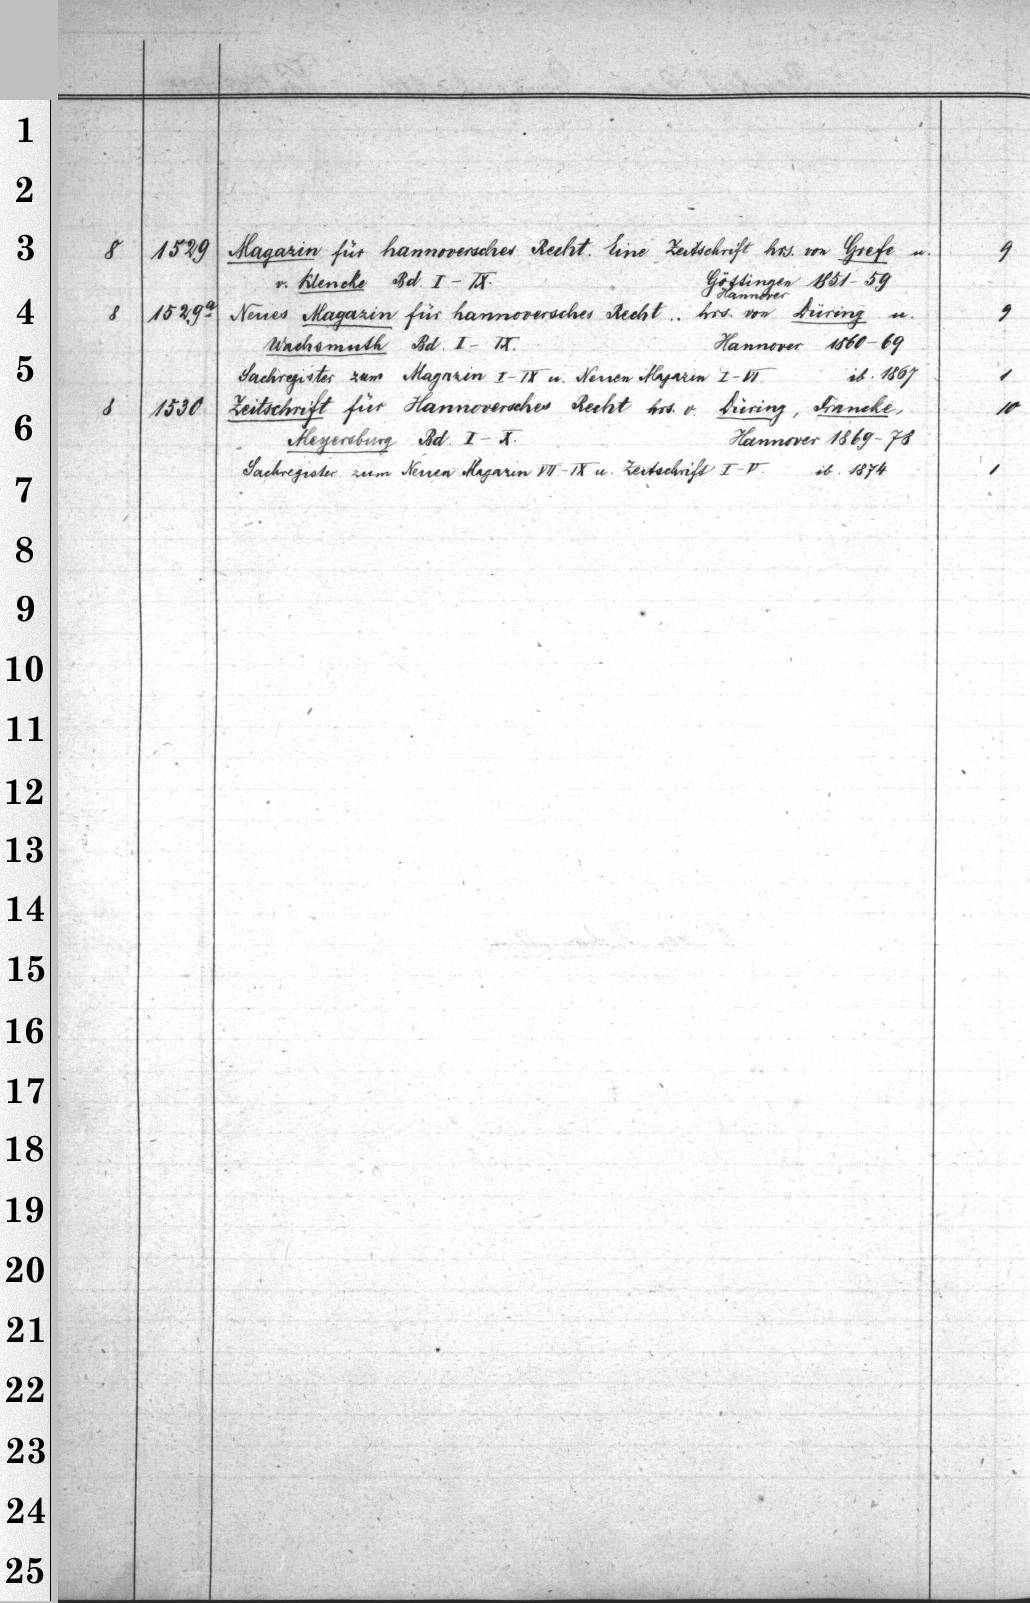 1
2
3
4
5
6
7
8
9
10
11
12
13
14
15
16
17
18
19
20
21
22
23
24
25
8 1529 Magazin für hannoversches Recht. Eine Zeitschrift hrs. von Grefe u. 9
v. Klencke Bd. I - IX. Göttingen 1851 - 59
Hannover
8 1529a Neues Magazin für hannoversches Recht .. hrs. von Düring u. 9
Wachsmuth Bd. I - IX. Hannover 1860 - 69
Sachregister zum Magazin I - IX u. Neuen Magazin I - VI ib. 1867 1
8 1530 Zeitschrift für Hannoversches Recht hrs. v. Düring, Francke, 10
Meyersburg Bd. I - X. Hannover 1869 - 78
Sachregister zum Neuen Magazin VII - IX u. Zeitschrift I - V. ib. 1874 1